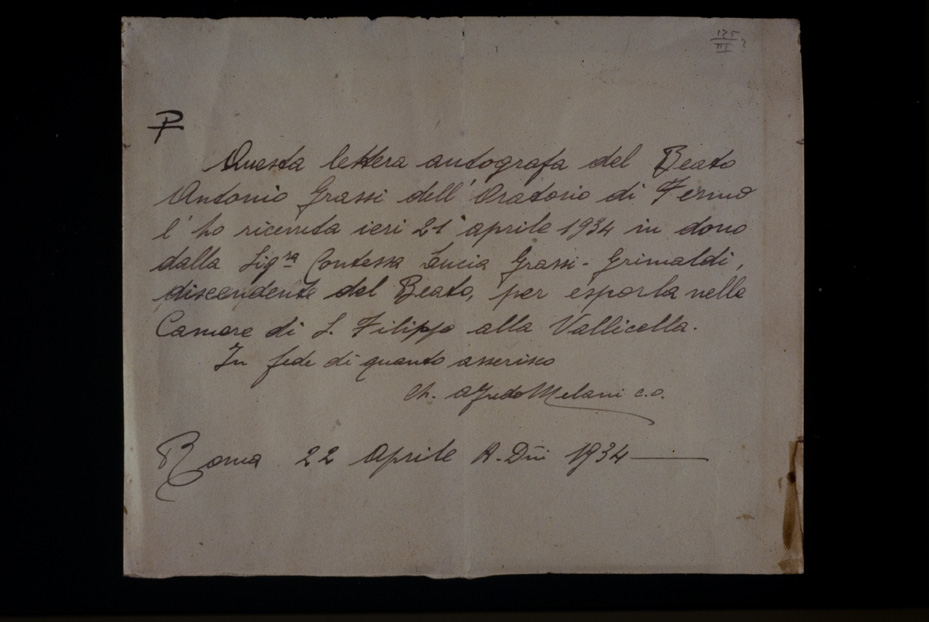 175
III
☧
Questa lettera autografa del Beato
Antonio Grassi dell'Oratorio di Fermo
l'ho ricevuta ieri 21 aprile 1934 in dono
dalla Sigra Contessa Lucia Grassi-Grimaldi,
discendente del Beato, per esporla nelle
Camere di S. Filippo alla Vallicella.
In fede di quanto asserisco
Alfredo Melani c.o.
Roma 22 Aprile A. Dni 1934